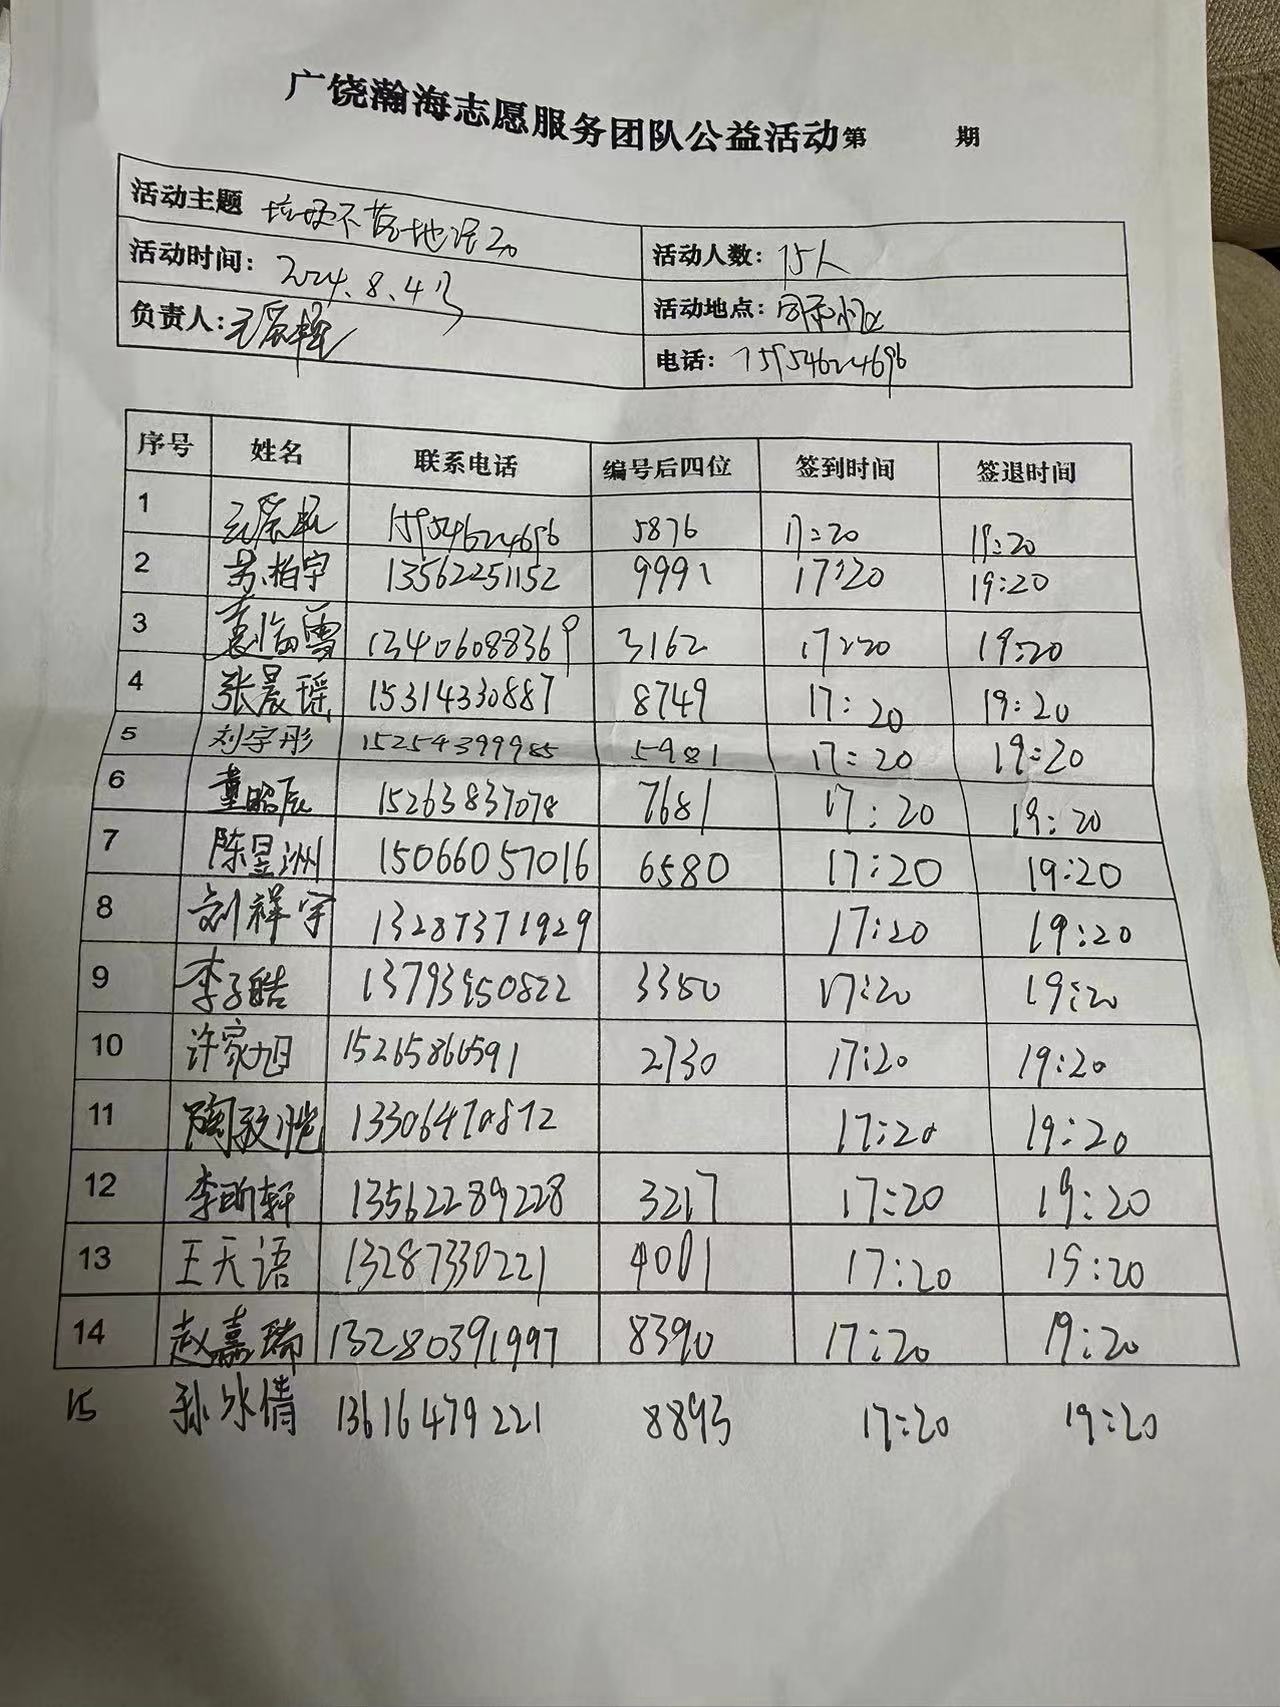 广饶瀚海志愿服务团队公益活动第 期
活动主题 垃圾不落地活动
活动人数: 15人
活动时间: 2024.8.4日
活动地点: 同和小区
负责人:
电话: 15954624696
序号 姓名 联系电话 编号后四位 签到时间 签退时间
1 15954624696 5876 17:20 19:20
2 苏柏宇 13562251152 9991 17:20 19:20
3 袁临雪 13406088369 3162 17:20 19:20
4 张晨瑶 15314330887 8749 17:20 19:20
5 刘宇彤 15254399985 5981 17:20 19:20
6 董昭辰 15263837078 7681 17:20 19:20
7 陈昱洲 15066057016 6580 17:20 19:20
8 刘祥宇 13287371929 17:20 19:20
9 李子皓 13793950822 3350 17:20 19:20
10 许家旭 15265866591 2730 17:20 19:20
11 陶致恺 13306470872 17:20 19:20
12 李昀轩 13562289228 3217 17:20 19:20
13 王天语 13287330221 4001 17:20 19:20
14 赵嘉瑞 13280391997 8390 17:20 19:20
15 孙冰倩 13616479221 8893 17:20 19:20